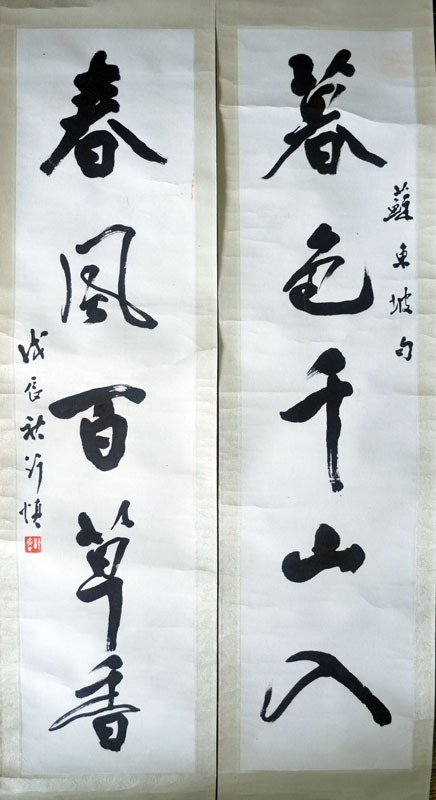 暮色千山入
蘇東坡句
春風百草香
戊辰秋沂慎